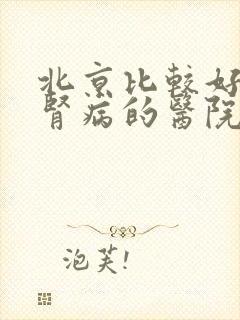 北京比較好
腎病的醫院
泡芙!